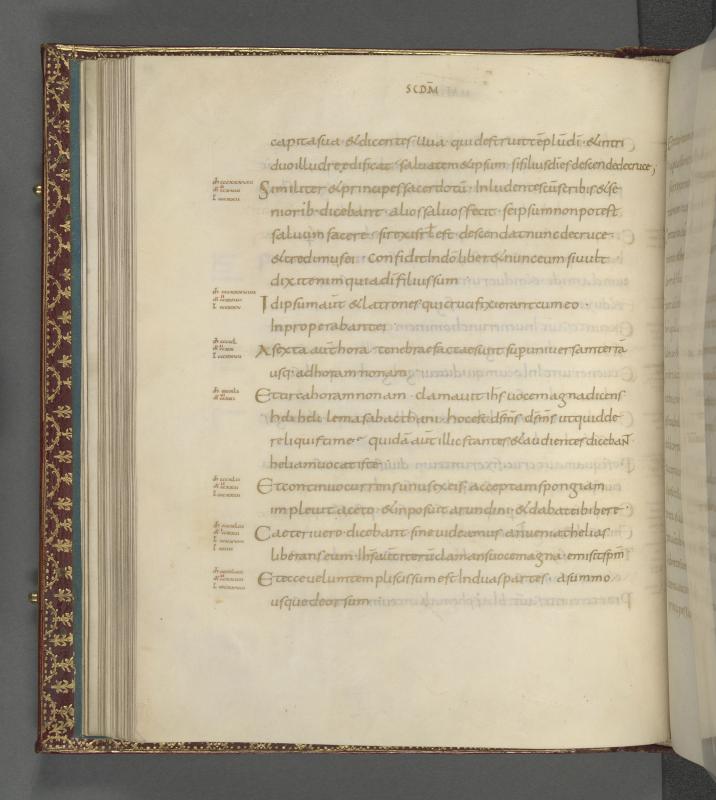 SCDM
capita sua · & dicentes · Uua · qui destruit tēplū dī · & in tri
duo illud reedificat · salua temetipsum · si filius dī es descende de cruce
Similiter & principes sacerdotū · Inludentes cū scribis & se
niorib· dicebant · alios saluos fecit · se ipsum non potest
saluum facere · si rex isrl est · descendat nunc de cruce ·
& credimus ei · Confidit In dō liber& nunc eum si uult
dixit enim quia dī filius sum ·
Idipsum aut & latrones qui crucifixi erant cum eo ·
Inproperabant ei
A sexta aut hora · tenebrae factae sunt sup uniuersam terrā
usq· ad horam nonam ·
Et circa horam nonam · clamauit ihs uoce magna dicens
heli heli lema sabacthani · hoc est dsms dsms ut quid de
reliquisti me · quidā aut illic stantes & audientes diceban
heliam uocat iste ·
Et continuo currens unus ex eis · acceptam spongiam
impleuit aceto · & inposuit arundini · & dabat ei bibere ·
Caeteri uero · dicebant sine uideamus an ueniat helias
liberans eum · Ihs aut iterū clamans uoce magna · emisit spm
Et ecce uelum templi scissum est In duas partes · a summo
usque deorsum ·